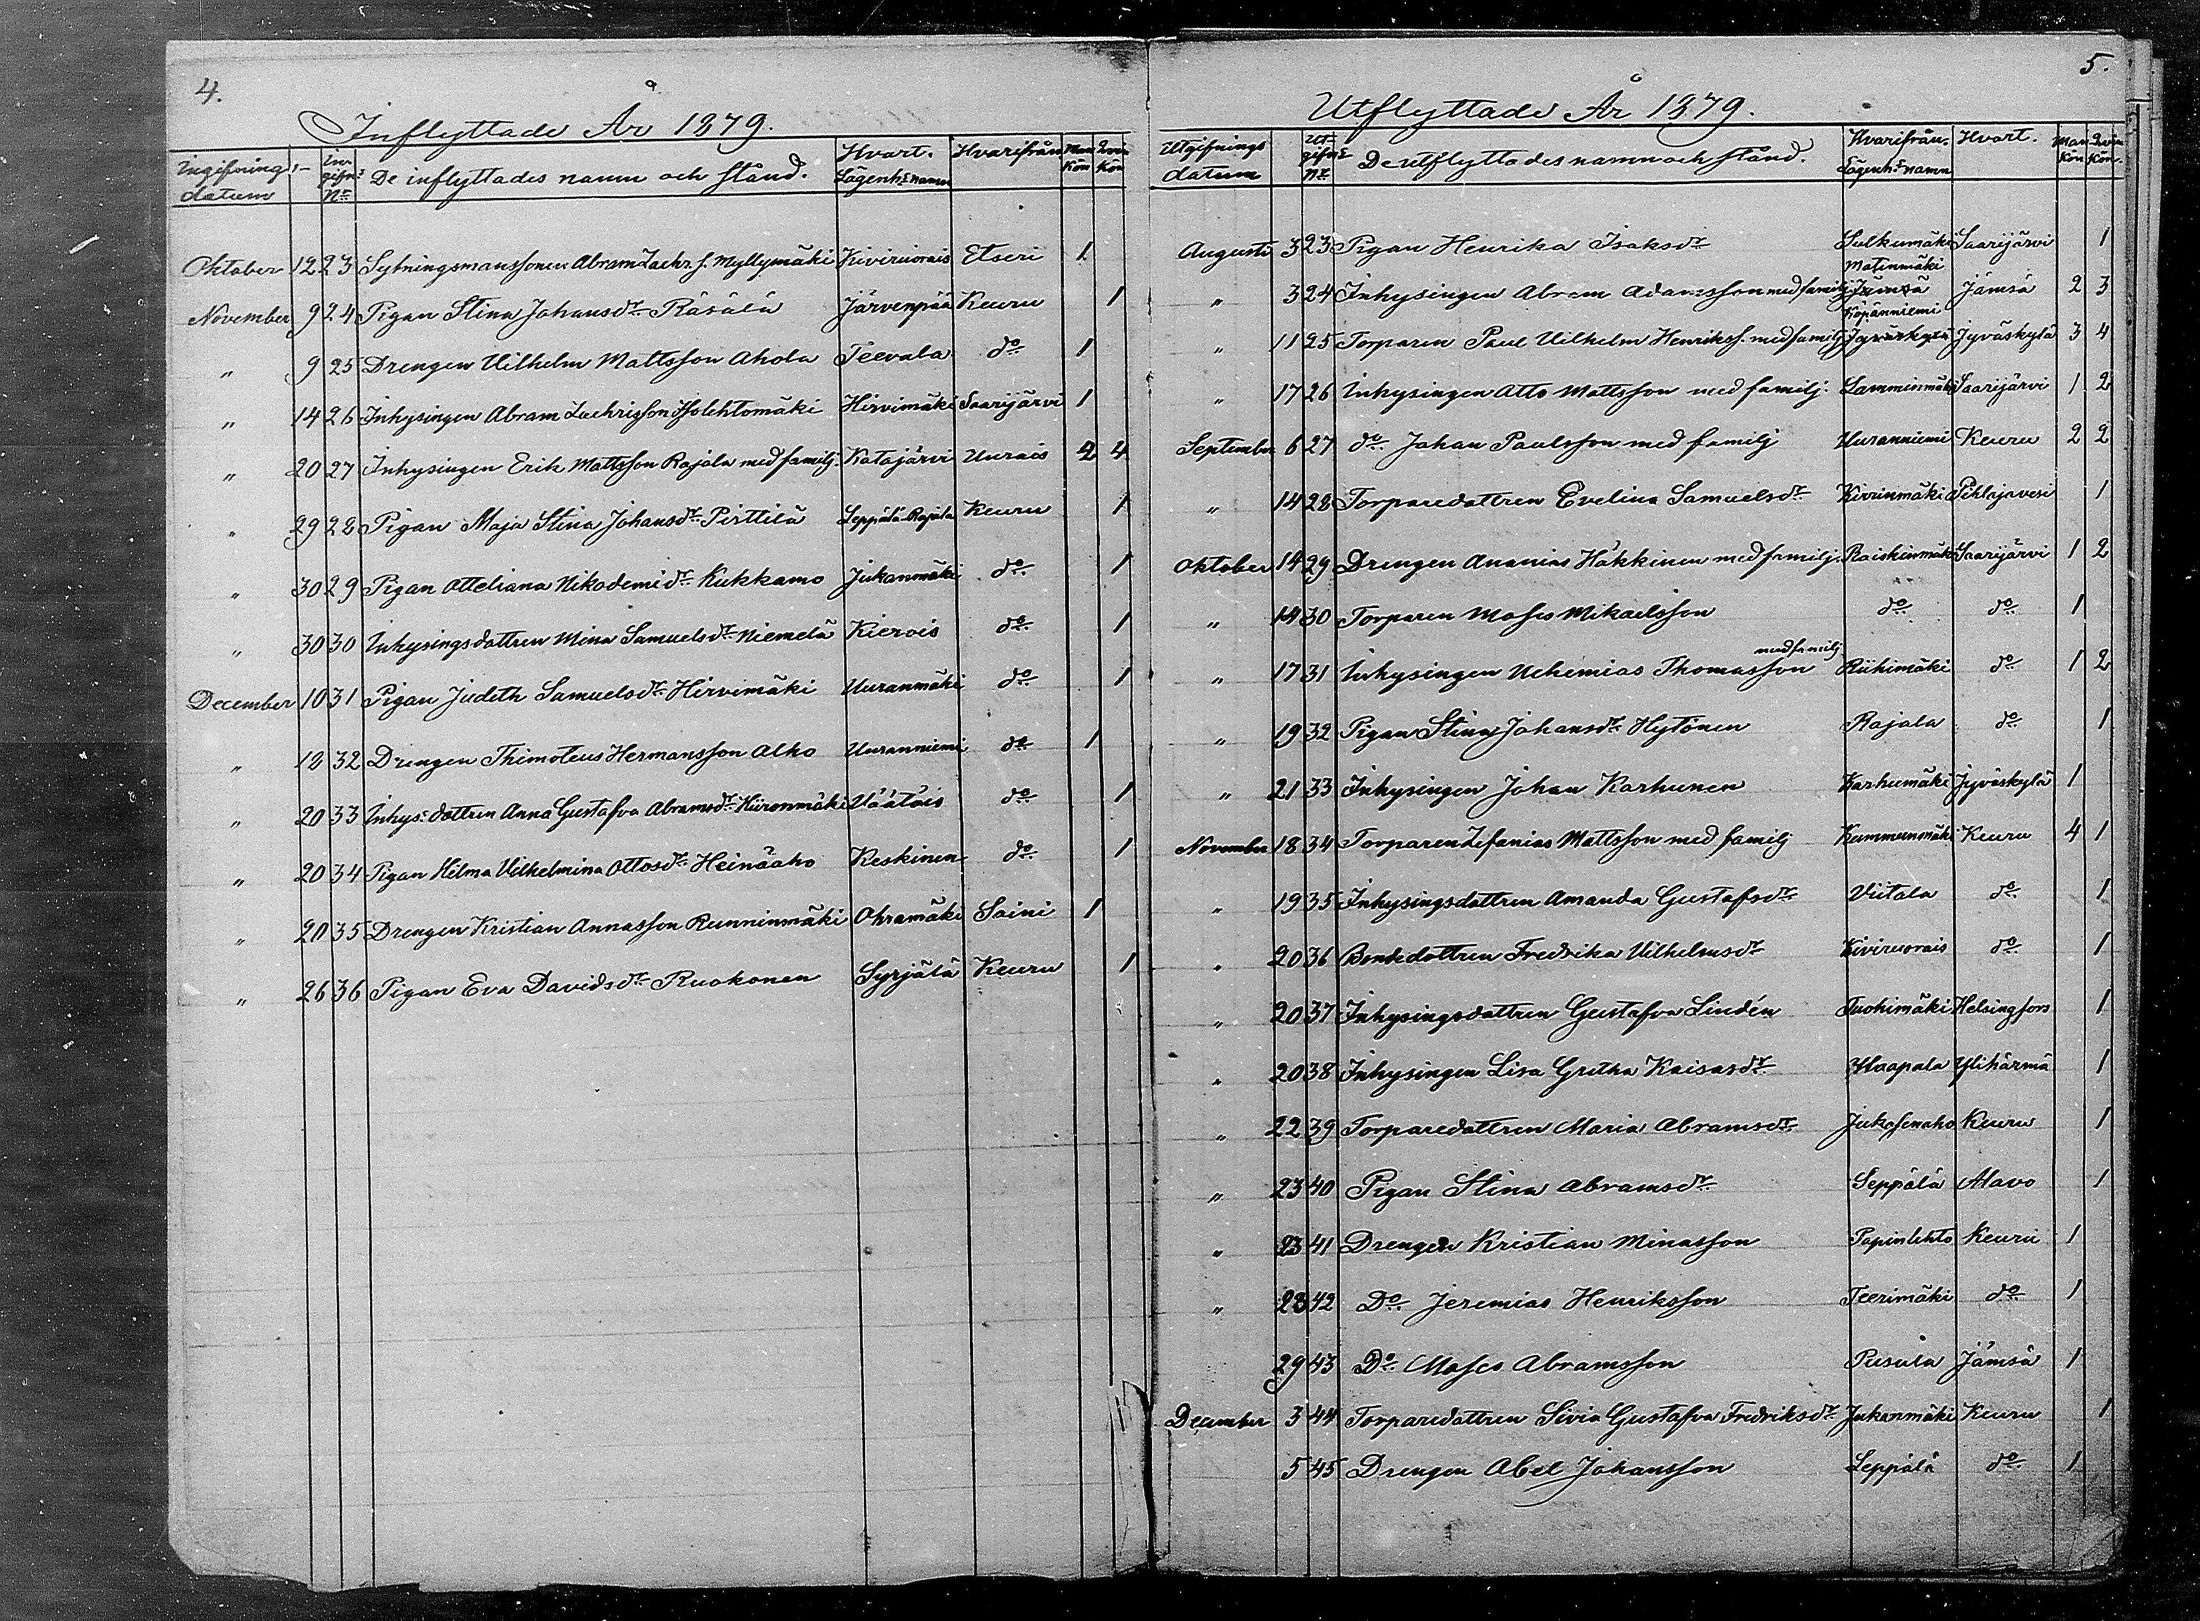 4.
Inflyttade År 1879.
Ingifnings datum Ingifn:s No De inflyttades namn och stånd. Hvart. Lägenh:s namn Hvarifrån Man Kön Qvin Kön
Oktober 12 23 Sytningsmanssonen Abram Zachr.s. Myllymäki Kiviruorais Etseri 1
November 9 24 Pigan Stina Johansdr. Räsälä Järvenpää Keuru 1
" 9 25 Drengen Vilhelm Mattsson Ahola Teevala do 1
" 14 26 Inhysingen Abram Zachrisson Isolehtomäki Hirvimäki Saarijärvi 1
" 20 27 Inhysingen Erik Mattsson Rajala med familj. Katajärvi Uurais 2 4
" 29 28 Pigan Maja Stina Johansdr. Pirttilä Seppälä-Rajala Keuru 1
" 30 29 Pigan Otteliana Nikodemidr. Kukkamo Jukanmäki do 1
" 30 30 Inhysingsdottren Mina Samuelsdr. Niemelä Kierois do 1
December 10 31 Pigan Judeth Samuelsdr. Hirvimäki Uuranmäki do 1
" 12 32 Drengen Thimoteus Hermansson Alho Uuranniemi do 1
" 20 33 Inhys:dottren Anna Gustafva Abramsdr. Kiironmäki Väätäis do 1
" 20 34 Pigan Hilma Vilhelmina Ottosdr. Heinäaho Keskinen do 1
" 20 35 Drengen Kristian Annasson Runninmäki Ohramäki Soini 1
" 26 36 Pigan Eva Davidsdr. Ruokonen Syrjälä Keuru 1
5.
Utflyttade År 1879.
Utgifnings datum Utgifn:s No De utflyttades namn och stånd. Hvarifrån. Lägenh:s namn Hvart. Man Kön Qvin Kön.
Augusti 3 23 Pigan Henrika Isaksdr. Sulkumäki Saarijärvi 1
Matinmäki
" 3 24 Inhysingen Abram Adamsson med familj Jämsä Jämsä 2 3
Kopänniemi
" 11 25 Torparen Paul Vilhelm Henrikss. med familj Jyväskylä Jyväskylä 3 4
" 17 26 Inhysingen Atto Mattsson med familj. Lamminmäki Saarijärvi 1 2
September 6 27 do Johan Paulsson med familj Uuranniemi Keuru 2 2
" 14 28 Torparedottren Evelina Samuelsdr. Kivrinmäki Pihlajavesi 1
Oktober 14 29 Drengen Ananias Häkkinen med familj. Raiskinmäki Saarijärvi 1 2
" 14 30 Torparen Moses Mikaelsson do do 1
med familj
" 17 31 Inhysingen Nehemias Thomasson Riihimäki do 1 2
" 19 32 Pigan Stina Johansdr. Hytönen Rajala do 1
" 21 33 Inhysingen Johan Karhunen Karhumäki Jyväskylä 1
November 18 34 Torparen Zefanias Mattsson med familj Kummunmäki Keuru 4 1
" 19 35 Inhysingsdottren Amanda Gustafsdr. Viitala do 1
" 20 36 Bondedottren Fredrika Vilhelmsdr. Kiviruorais do 1
" 20 37 Inhysingsdottren Gustafva Lindén Tuohimäki Helsingfors 1
" 20 38 Inhysingen Lisa Gretha Kaisasdr. Haapala Ylihärmä 1
" 22 39 Torparedottren Maria Abramsdr. Jukosenaho Keuru 1
" 23 40 Pigan Stina Abramsdr. Seppälä Alavo 1
" 23 41 Drengen Kristian Minasson Papinlehto Keuru 1
" 28 42 Do Jeremias Henriksson Teerimäki do 1
29 43 Do Moses Abramsson Pusula Jämsä 1
December 3 44 Torparedottren Sivia Gustafva Fredriksdr. Jukanmäki Keuru 1
5 45 Drengen Abel Johansson Seppälä do 1